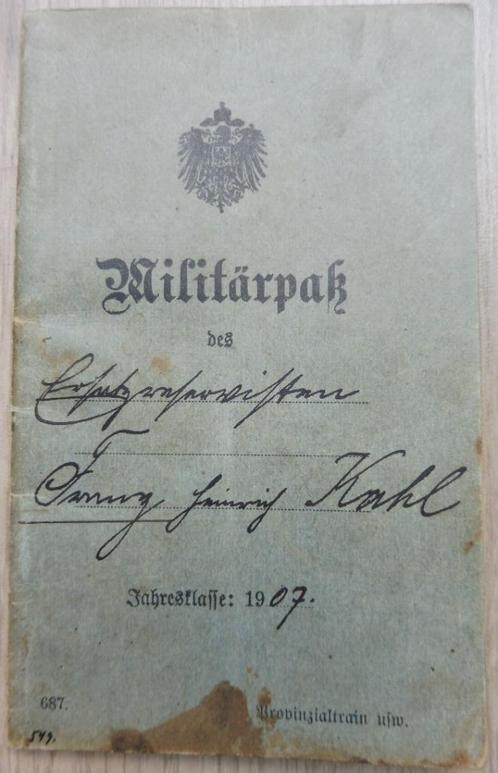 Militärpaß
des
Ersatzreservisten
Franz Heinrich Kahl
Jahresklasse: 1907.
687.
Provinzialtrain usw.
549.